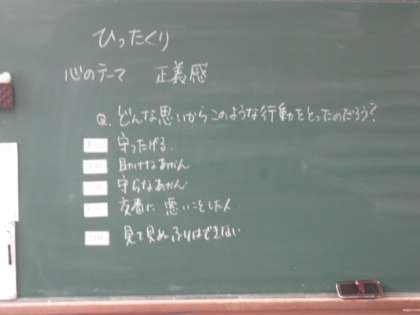 ひったくり
心のテーマ 正義感
Q. どんな思いからこのような行動をとったのだろう?
守ったげる.
助けなあかん
守らなあかん
友香に 悪いことした人
見て見ぬふりはできない